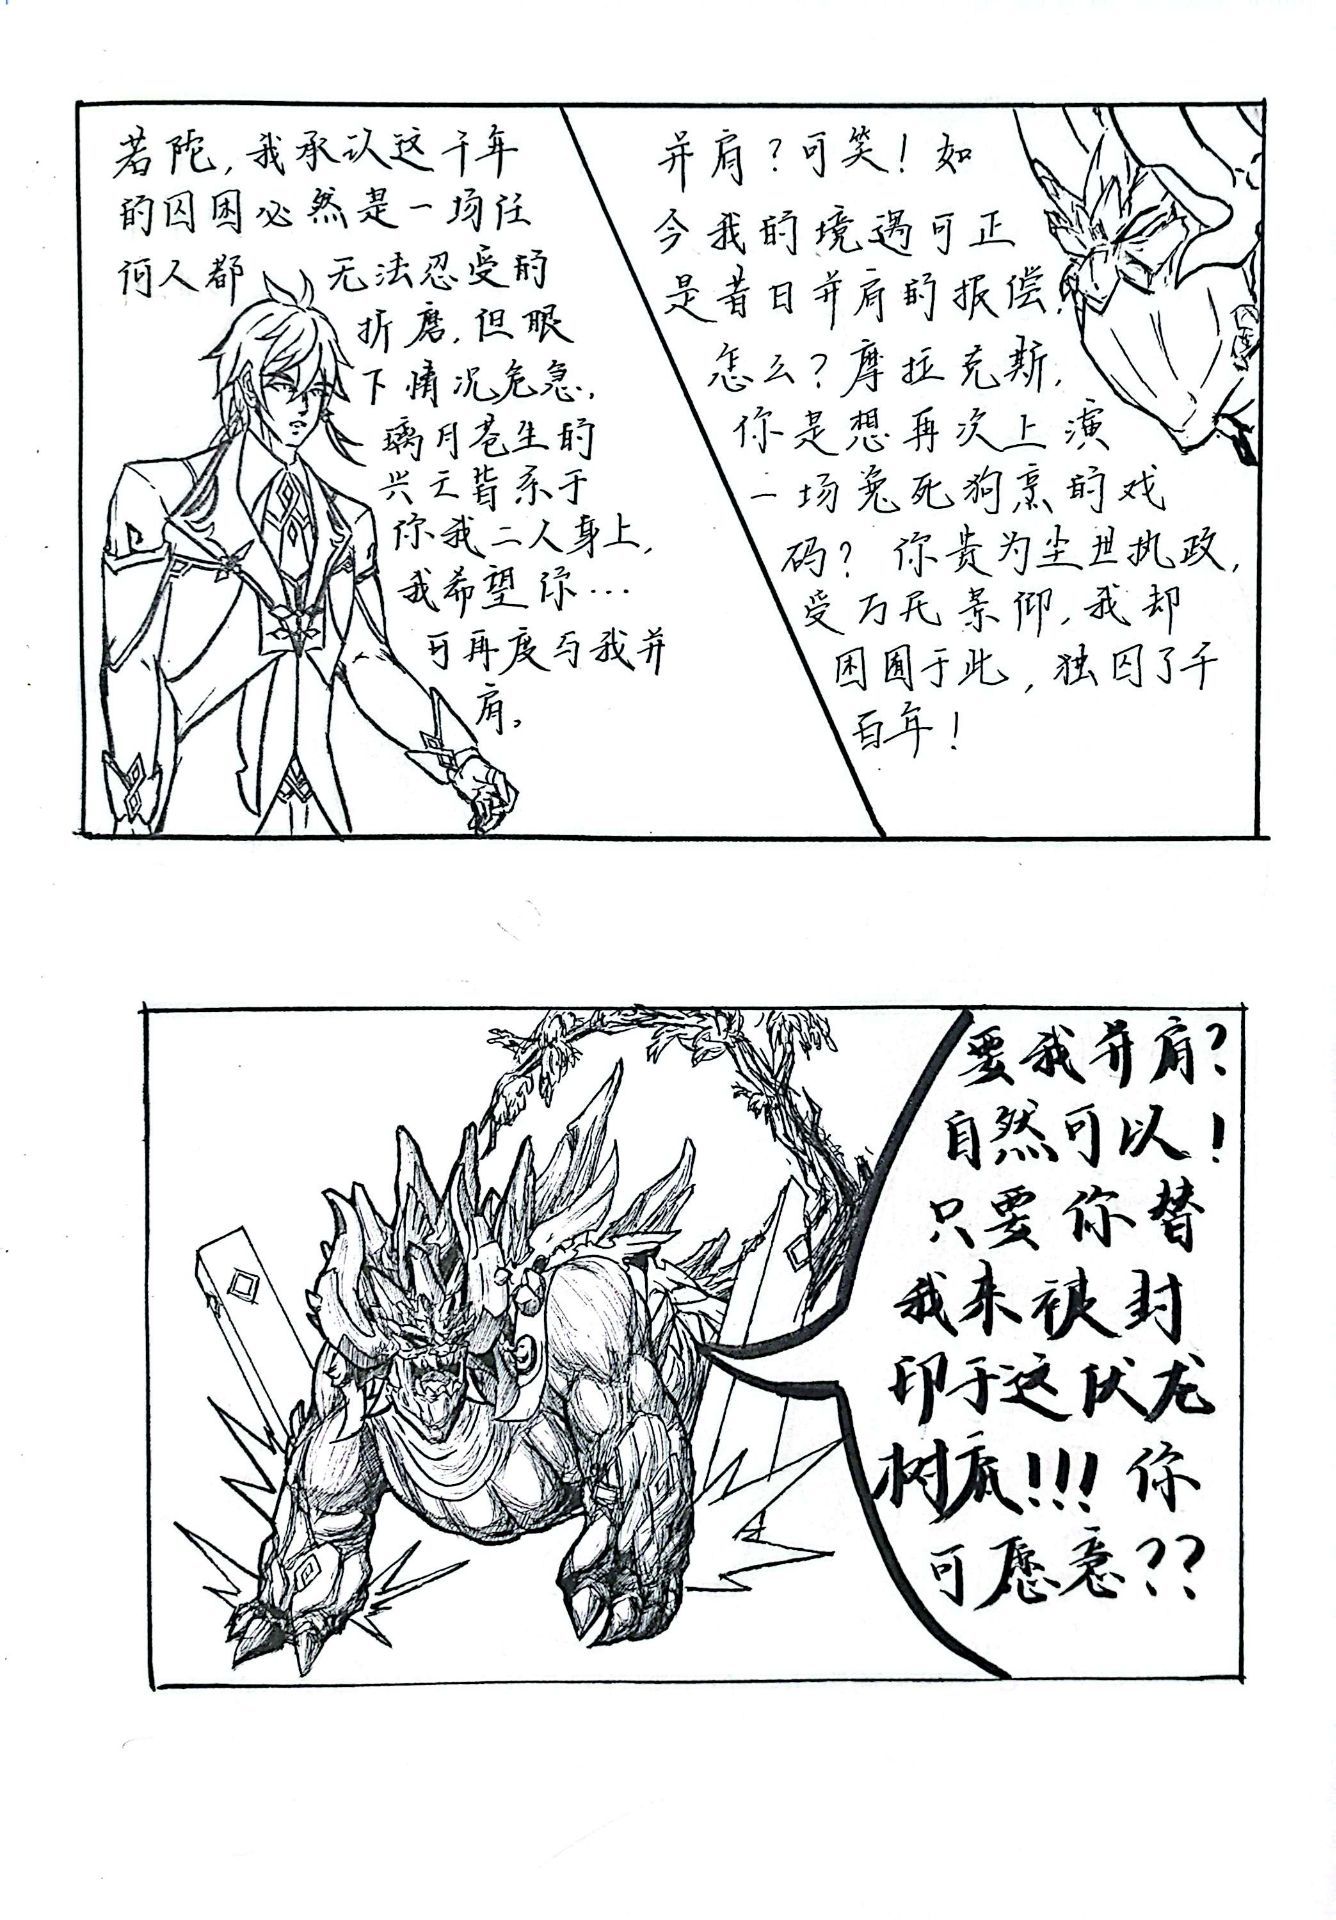 若陀，我承认这千年
的囚困必然是一场任
何人都无法忍受的
折磨，但眼
下情况危急，
璃月苍生的
兴亡皆系于
你我二人身上，
我希望你…
可再度与我并
肩。
并肩？可笑！如
今我的境遇可正
是昔日并肩的报偿，
怎么？摩拉克斯，
你是想再次上演
一场兔死狗烹的戏
码？你贵为尘世执政，
受万民景仰，我却
困囿于此，独囚了千
百年！
要我并肩？
自然可以！
只要你替
我来被封
印于这伏龙
树底！！！你
可愿意？？